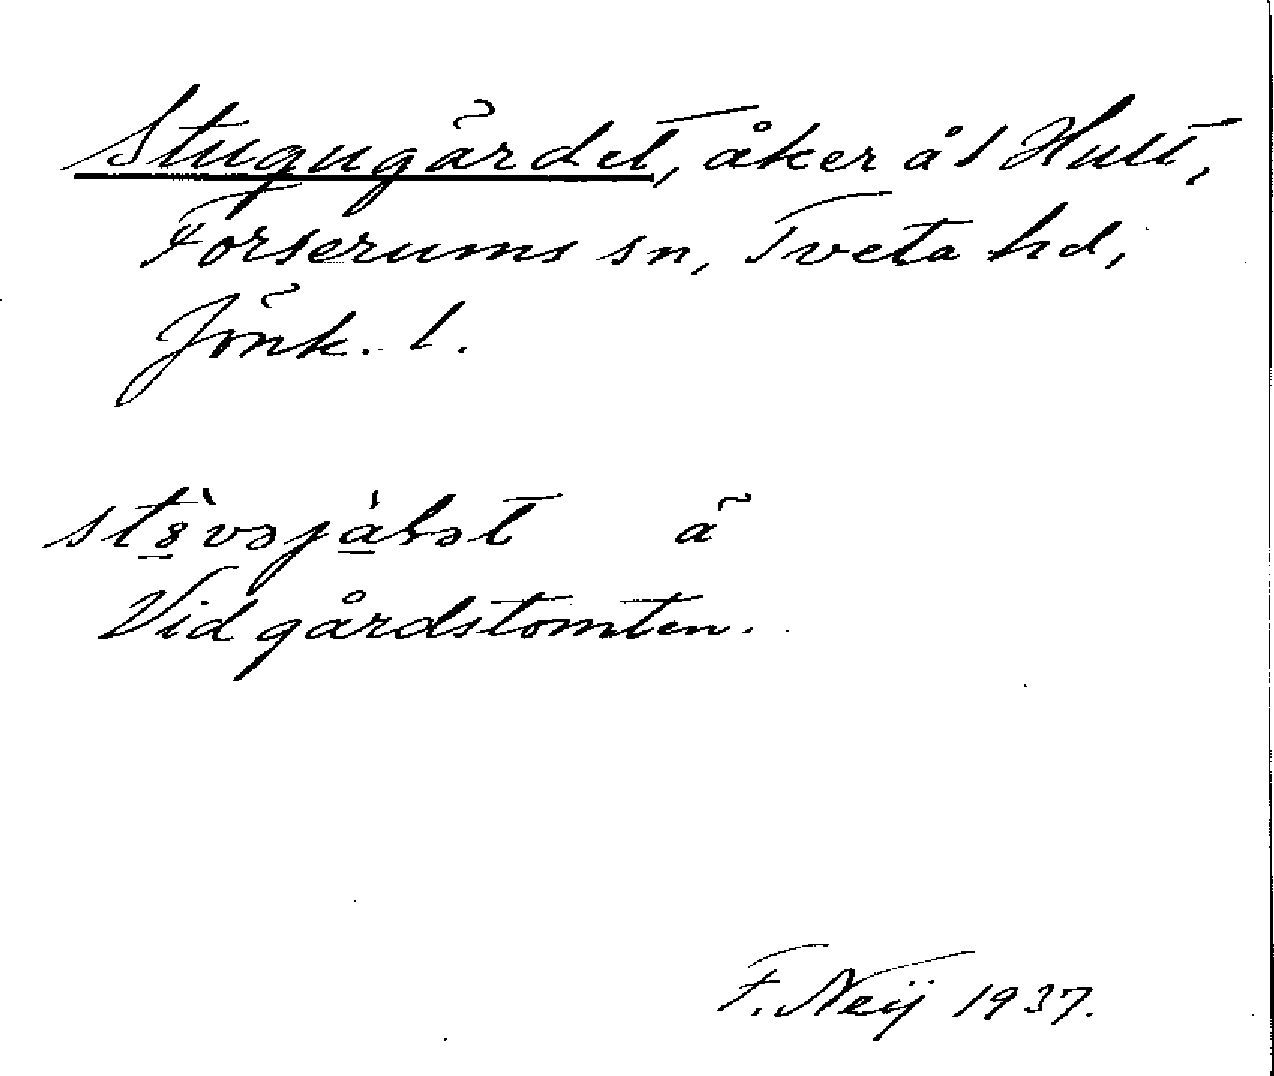 Stugugärdet, åker å l Hult,
Forserums sn, Tveta hd,
Jönk. l.
ä
Vid gårdstomten.
F. Neij 1937.